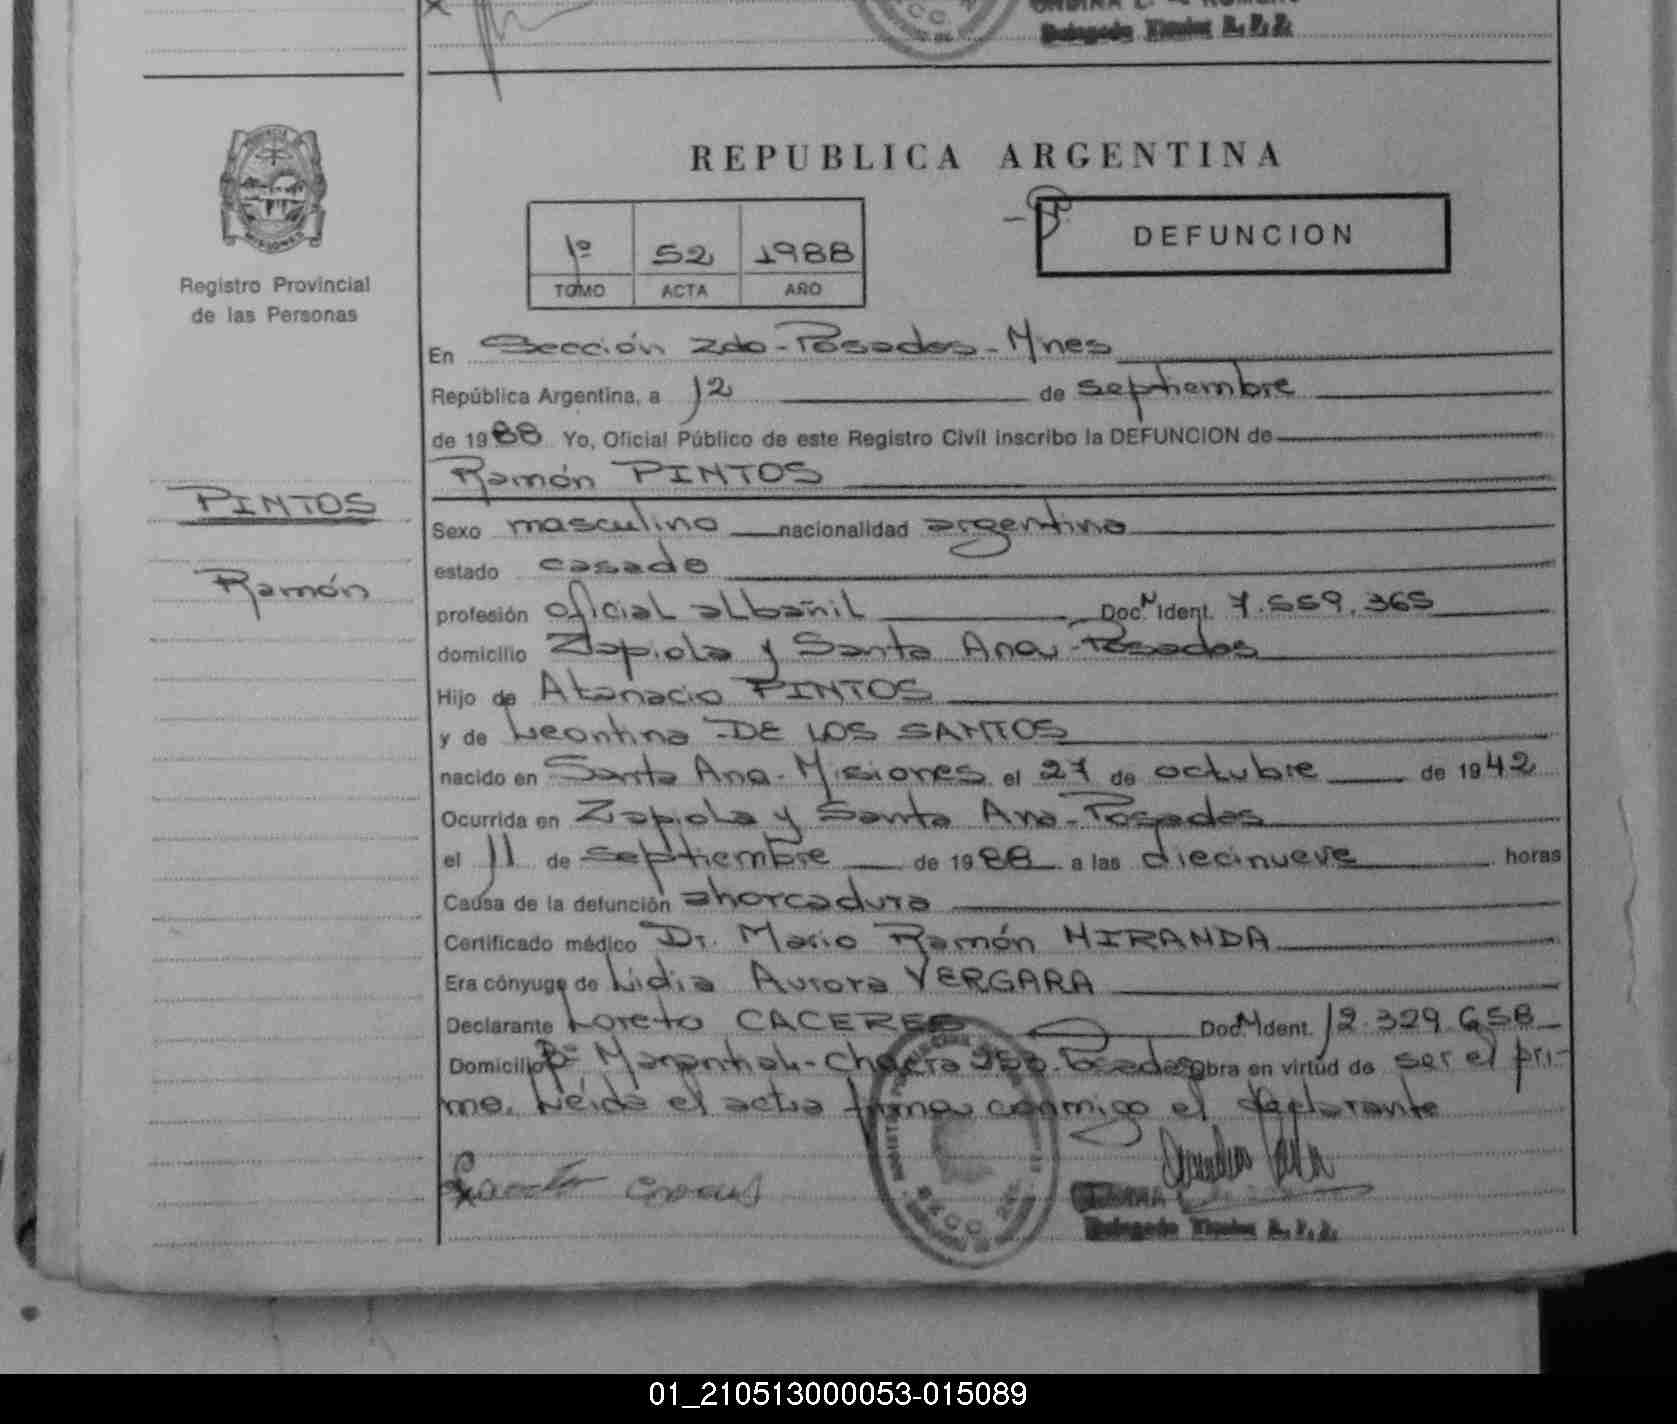 Delegado Titular R. P. P.
REPUBLICA ARGENTINA
1º 52 1988
TOMO ACTA AÑO
DEFUNCION
Registro Provincial
de las Personas
En Sección 2da-Posadas-Mnes
República Argentina, a 12 de septiembre
de 1988 Yo, Oficial Público de este Registro Civil inscribo la DEFUNCION de
Ramón PINTOS
PINTOS
Ramón
Sexo masculino nacionalidad argentina
estado casado
profesión oficial albañil Doc N Ident. 7.559.365
domicilio Zapiola y Santa Ana-Posadas
Hijo de Atanacio PINTOS
y de Leontina DE LOS SANTOS
nacido en Santa Ana-Misiones el 27 de octubre de 1942
Ocurrida en Zapiola y Santa Ana-Posadas
el 11 de septiembre de 1988 a las diecinueve horas
Causa de la defunción ahorcadura
Certificado médico Dr. Mario Ramón MIRANDA
Era cónyuge de Lidia Aurora VERGARA
Declarante Loreto CACERES Doc N Ident. 12.329.658
Domicilio Bº - Chacra Posadas obra en virtud de ser el pri-
mo. Leída el acta firma conmigo el declarante
Delegado Titular R. P. P.
01_210513000053-015089